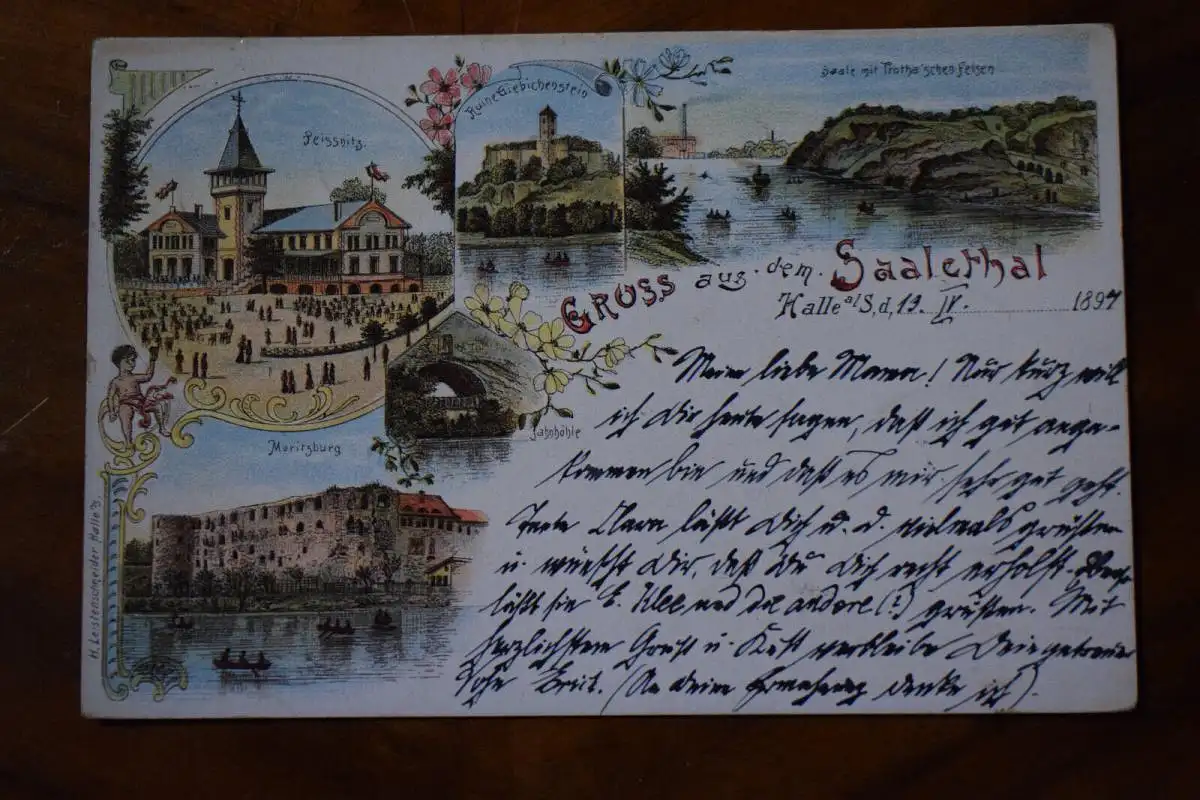 Peissnitz.
Ruine Giebichenstein
Saale mit Trotha'schen Felsen
Gruss aus dem Saalethal
Halle a/S, d, 19. IV. 1897
Jahnhöhle
Moritzburg
H. Leistenschneider Halle S.
Meine liebe Mama! Nur kurz will
ich Dir heute sagen, daß ich gut ange-
kommen bin und daß es mir sehr gut geht.
Tante Clara läßt Dich u. d. vielmals grüßen
u. wünscht Dir, daß Du Dich recht erholst.
läßt sie E. Klee und die andere (?) grüßen. Mit
herzlichstem Gruß u. Kuß verbleibe Dein getreuer
Sohn (An Deine Ermahnung denke ich).